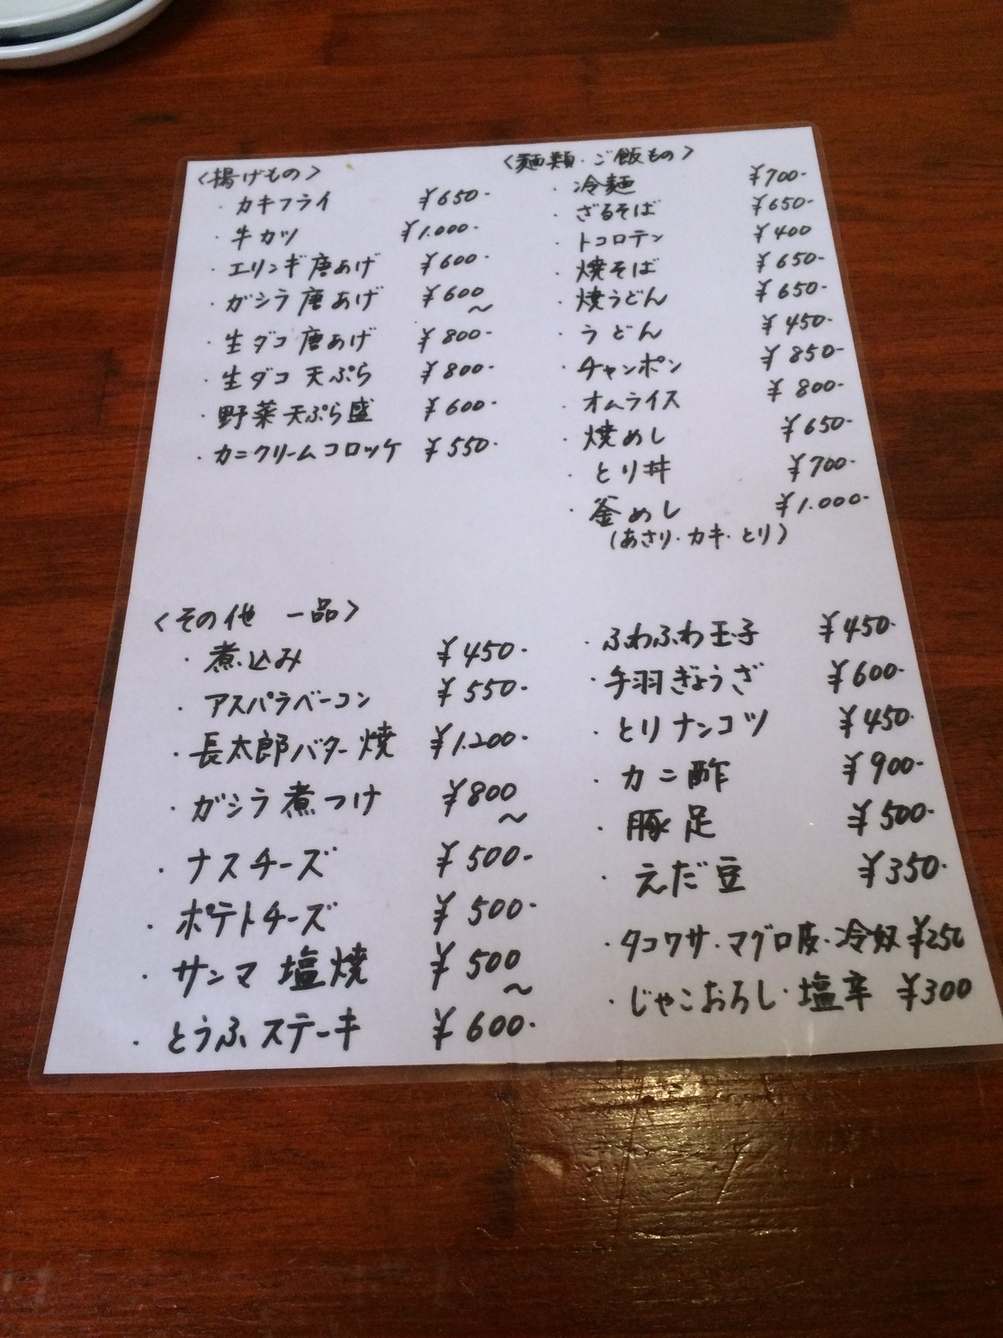 <揚げもの>
・カキフライ ¥650-
・牛カツ ¥1.000-
・エリンギ唐あげ ¥600-
・ガシラ唐あげ ¥600~
・生ダコ唐あげ ¥800-
・生ダコ天ぷら ¥800-
・野菜天ぷら盛 ¥600-
・カニクリームコロッケ ¥550-
<麺類・ご飯もの>
・冷麺 ¥700-
・ざるそば ¥650-
・トコロテン ¥400
・焼そば ¥650-
・焼うどん ¥650-
・うどん ¥450-
・チャンポン ¥850-
・オムライス ¥800-
・焼めし ¥650-
・とり丼 ¥700-
・釜めし ¥1.000-
(あさり・カキ・とり)
<その他 一品>
・煮込み ¥450-
・アスパラベーコン ¥550-
・長太郎バター焼 ¥1.200-
・ガシラ煮つけ ¥800~
・ナスチーズ ¥500-
・ポテトチーズ ¥500-
・サンマ塩焼 ¥500~
・とうふステーキ ¥600-
・ふわふわ玉子 ¥450-
・手羽ぎょうざ ¥600-
・とりナンコツ ¥450-
・カニ酢 ¥900-
・豚足 ¥500-
・えだ豆 ¥350-
・タコワサ・マグロ皮・冷奴 ¥250
・じゃこおろし・塩辛 ¥300